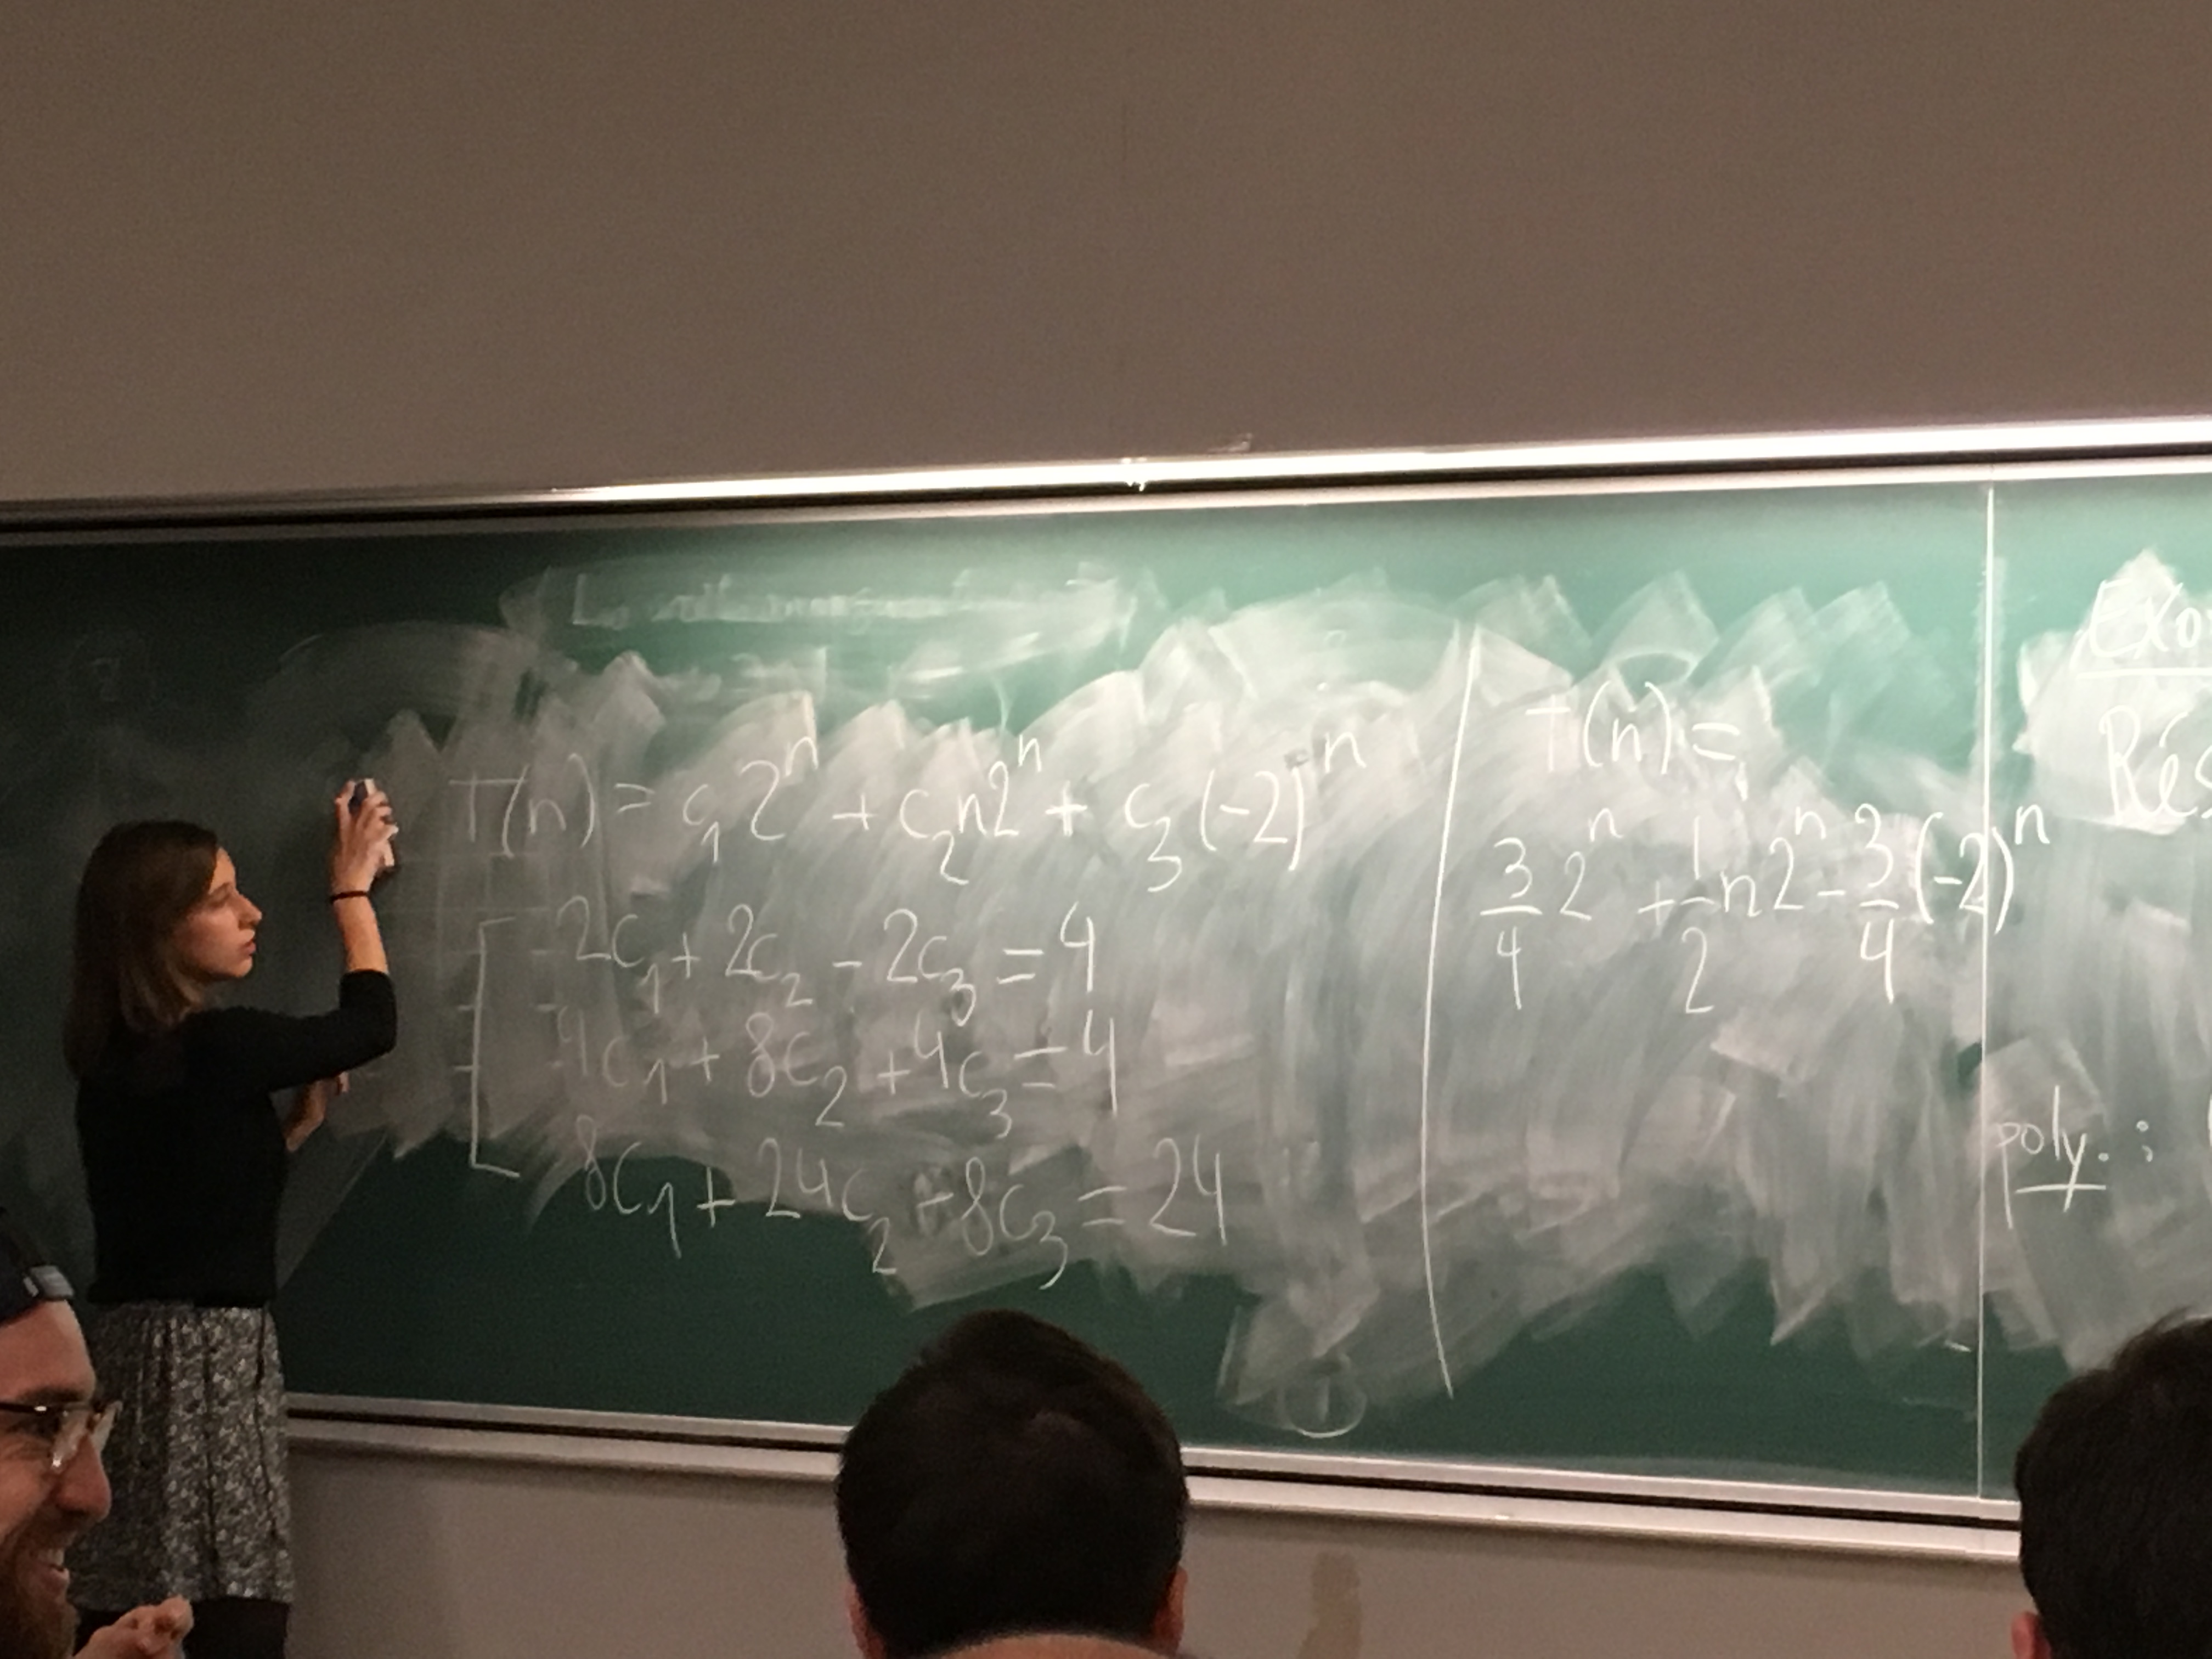 T(n) = c₁2ⁿ + c₂n2ⁿ + c₃(-2)ⁿ
2c₁ + 2c₂ - 2c₃ = 4
4c₁ + 8c₂ + 4c₃ = 4
8c₁ + 24c₂ - 8c₃ = 24
1
T(n) =
3/4 2ⁿ + 1/2 n2ⁿ - 3/4 (-2)ⁿ
Exo
Rés
poly. :